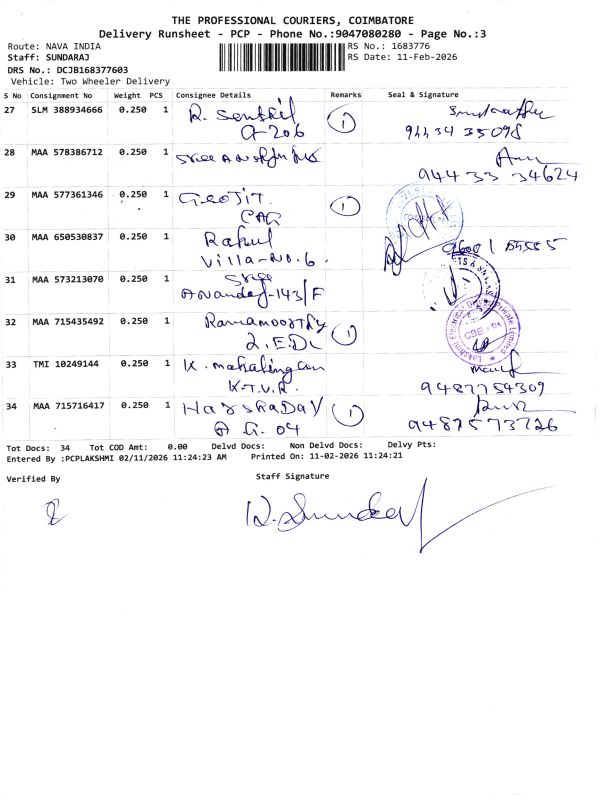 THE PROFESSIONAL COURIERS, COIMBATORE
Delivery Runsheet - PCP - Phone No.:9047080280 - Page No.:3
Route: NAVA INDIA
Staff: SUNDARAJ
DRS No.: DCJB168377603
Vehicle: Two Wheeler Delivery
RS No.: 1683776
RS Date: 11-Feb-2026
S No Consignment No Weight PCS Consignee Details Remarks Seal & Signature
27 SLM 388934666 0.250 1 R. Senthil 1
G-206
28 MAA 578386712 0.250 1 Sree
94433 34624
29 MAA 577361346 0.250 1 GEOJIT. 1
CAR
30 MAA 650530837 0.250 1 Rahul
Villa-No.6.
31 MAA 573213070 0.250 1 Sree
Anandas-143/F
32 MAA 715435492 0.250 1 Ramamoorthy 1
CBE
33 TMI 10249144 0.250 1 K. mahalingam
K.T.V.R. 9487754309
34 MAA 715716417 0.250 1 1
04 9487573726
Tot Docs: 34 Tot COD Amt: 0.00 Delvd Docs: Non Delvd Docs: Delvy Pts:
Entered By :PCPLAKSHMI 02/11/2026 11:24:23 AM Printed On: 11-02-2026 11:24:21
Verified By
Staff Signature